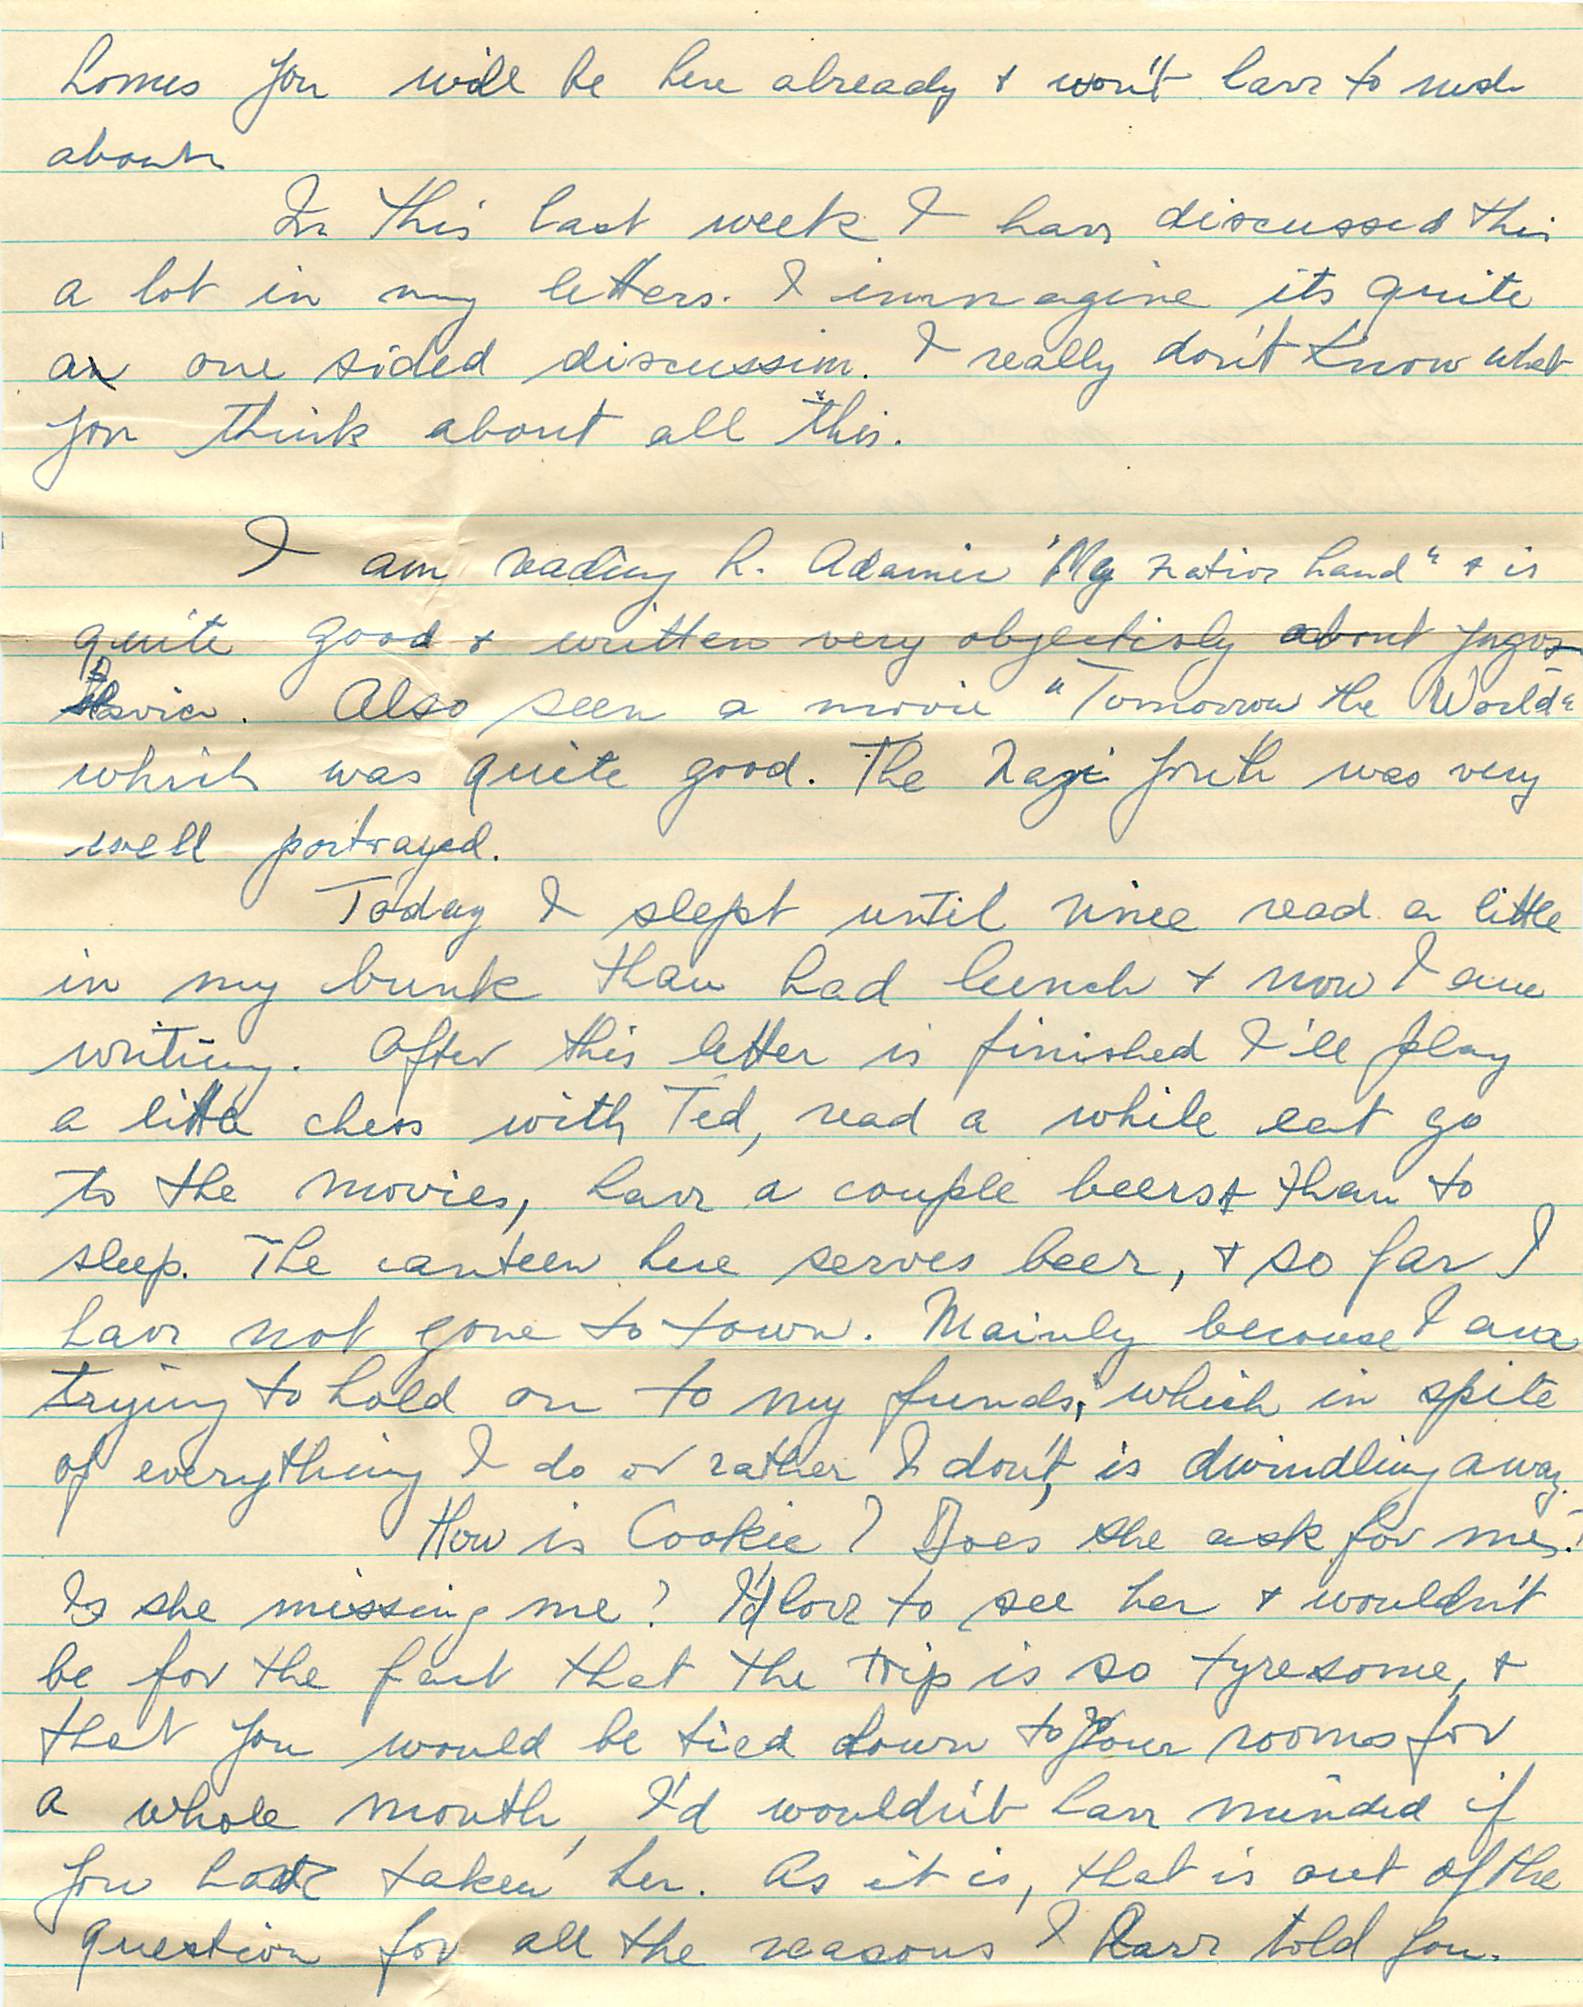 homes you will be here already & won't have to rush
about.
In this last week I have discussed this
a lot in my letters. I immagine its quite
a one sided discussion. I really don't know what
you think about all this.
I am reading L. Adamic "My native Land" & is
quite good & written very objectivly about Jugos-
lavia. Also seen a movie "Tomorrow the World"
which was quite good. The Nazi youth was very
well portrayed.
Today I slept until nine read a little
in my bunk than had lunch & now I am
writing. After this letter is finished I'll play
a little chess with Ted, read a while eat go
to the movies, have a couple beers & than to
sleep. The canteen here serves beer, & so far I
have not gone to town. Mainly because I am
trying to hold on to my funds, which in spite
of everything I do or rather I don't, is dwindling away.
How is Cookie? Does she ask for me?
Is she missing me? I'd love to see her & wouldn't
be for the fact that the trip is so tyresome, &
that you would be tied down to your rooms for
a whole month, I'd wouldn't have minded if
you had taken her. As it is, that is out of the
question for all the reasons I have told you.